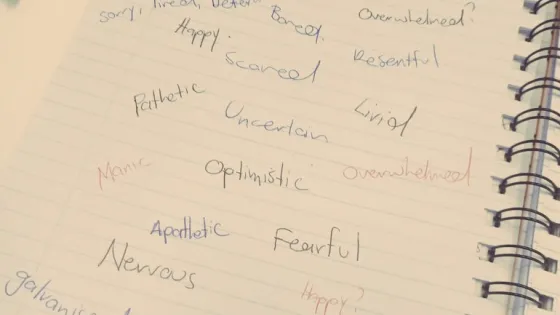 sorry, Tired, Bored, Overwhelmed?
Happy.
Scared Resentful
Pathetic Uncertain Livid
Manic Optimistic Overwhelmed
Apathetic Fearful
Nervous
Happy?